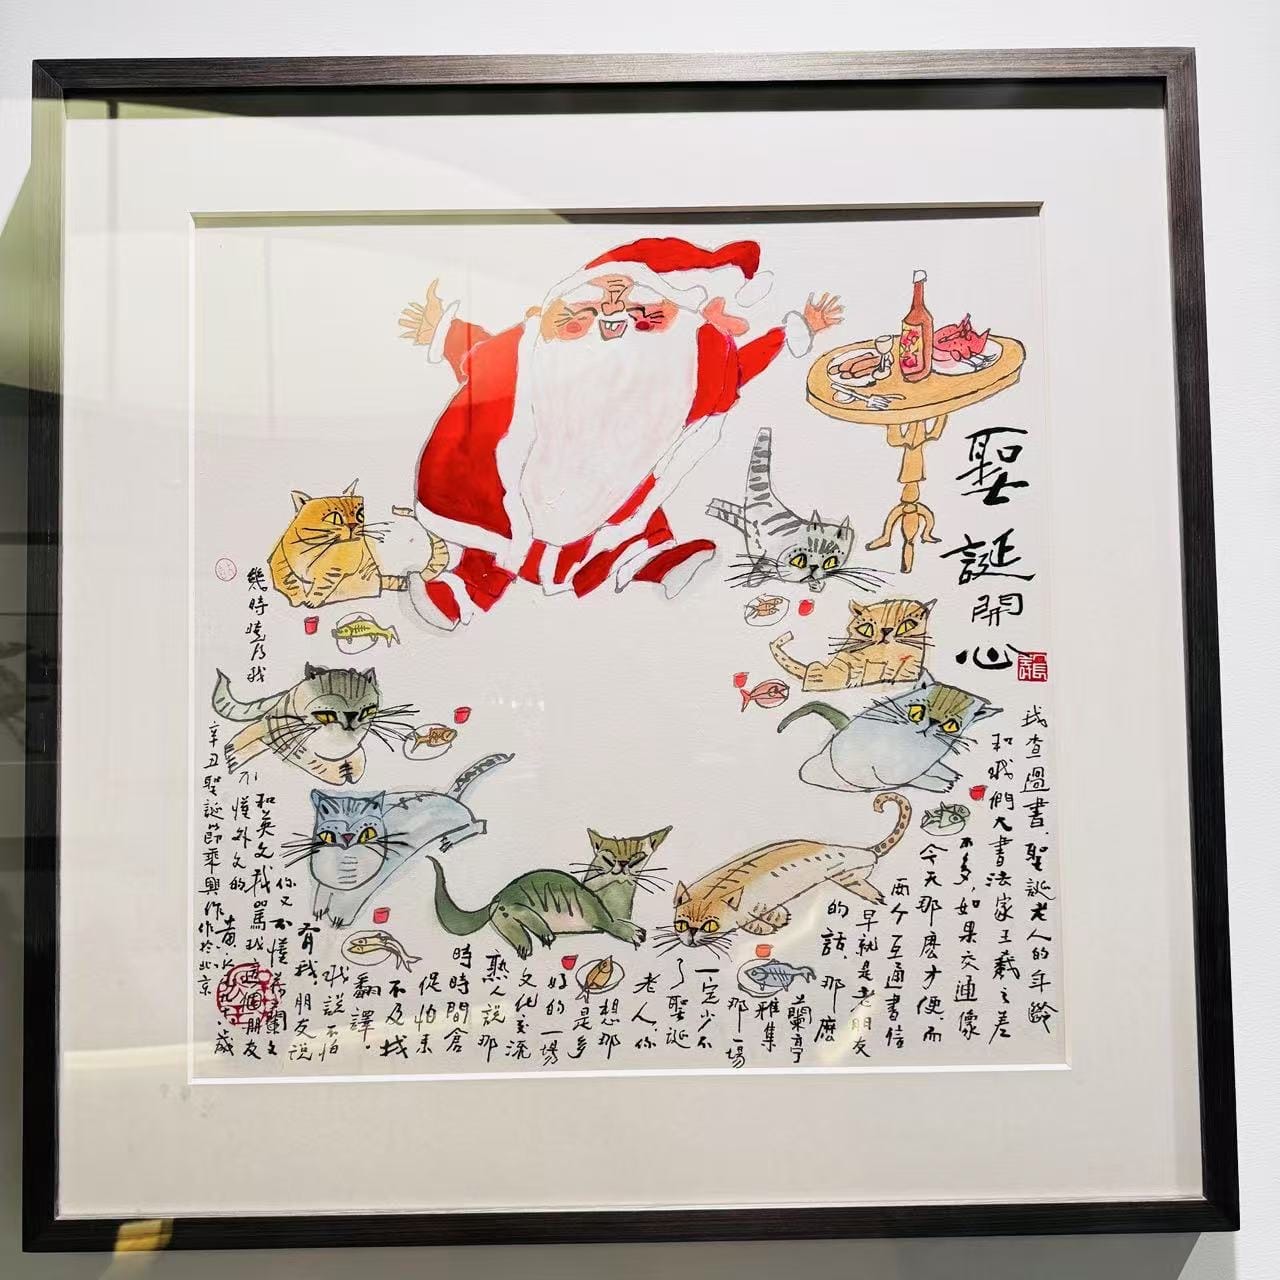 聖誕開心
我查過書,聖誕老人的年齡
和我們大書法家王羲之差
不多,如果交通像
今天那麽方便,而
兩个互通書信
早就是老朋友
的話,那麽
蘭亭
雅集
那一場
一定少不
了聖誕
老人,你
想那是多
好的一場
文化交流
熟人說那
時時間倉
促怕來
不及找
翻譯。
我說不怕
有我。朋友說
你又不懂荷蘭文
和英文我罵我這個朋友
幾時曉得我
不懂外文的
辛丑聖誕節乘興作
作於北京
黃永玉
歲